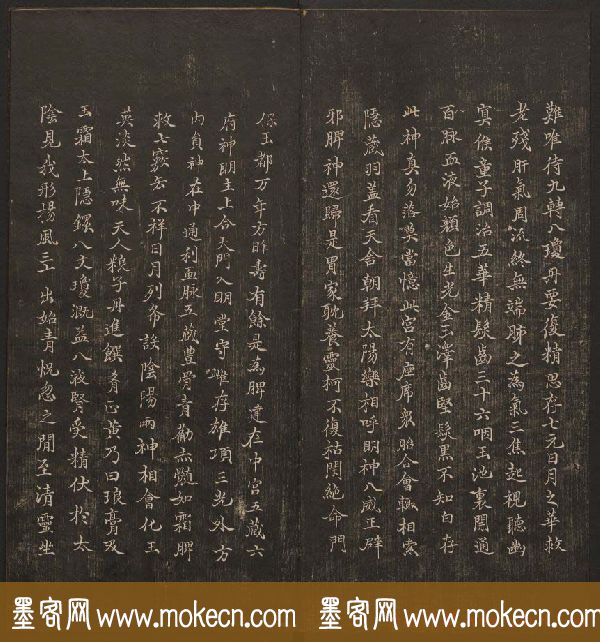 難唯待九轉八瓊丹要復精思存七元日月之華救
老殘肝氣周流終無端肺之為氣三焦起視聽幽
冥候童子調治五華精髮齒三十六咽玉池裏開通
百脉血液始顏色生光金玉澤齒堅髮黑不知白存
此神真勿落莫當憶此宮有座席衆胎合會轉相索
隱藏羽蓋看天舍朝拜太陽樂相呼明神八威正辟
邪脾神還歸是胃家耽養靈柯不復枯閇絕命門
保玉都万年方昨壽有餘是為脾建在中宮五藏六
府神明主上合天門入明堂守雌存雄頂三光外方
內員神在中通利血脉五藏豊骨青勸六髓如霜脾
救七竅去不祥日月列布設陰陽兩神相會化玉
英淡然無味天人糧子丹進饌肴正黃乃曰琅膏及
玉霜太上隱鐶八文瓊溉益八液腎受精伏於太
陰見我形揚風三玄出始青恍惚之間至清靈坐
墨客网 www.mokecn.com 墨客网 www.mokecn.com